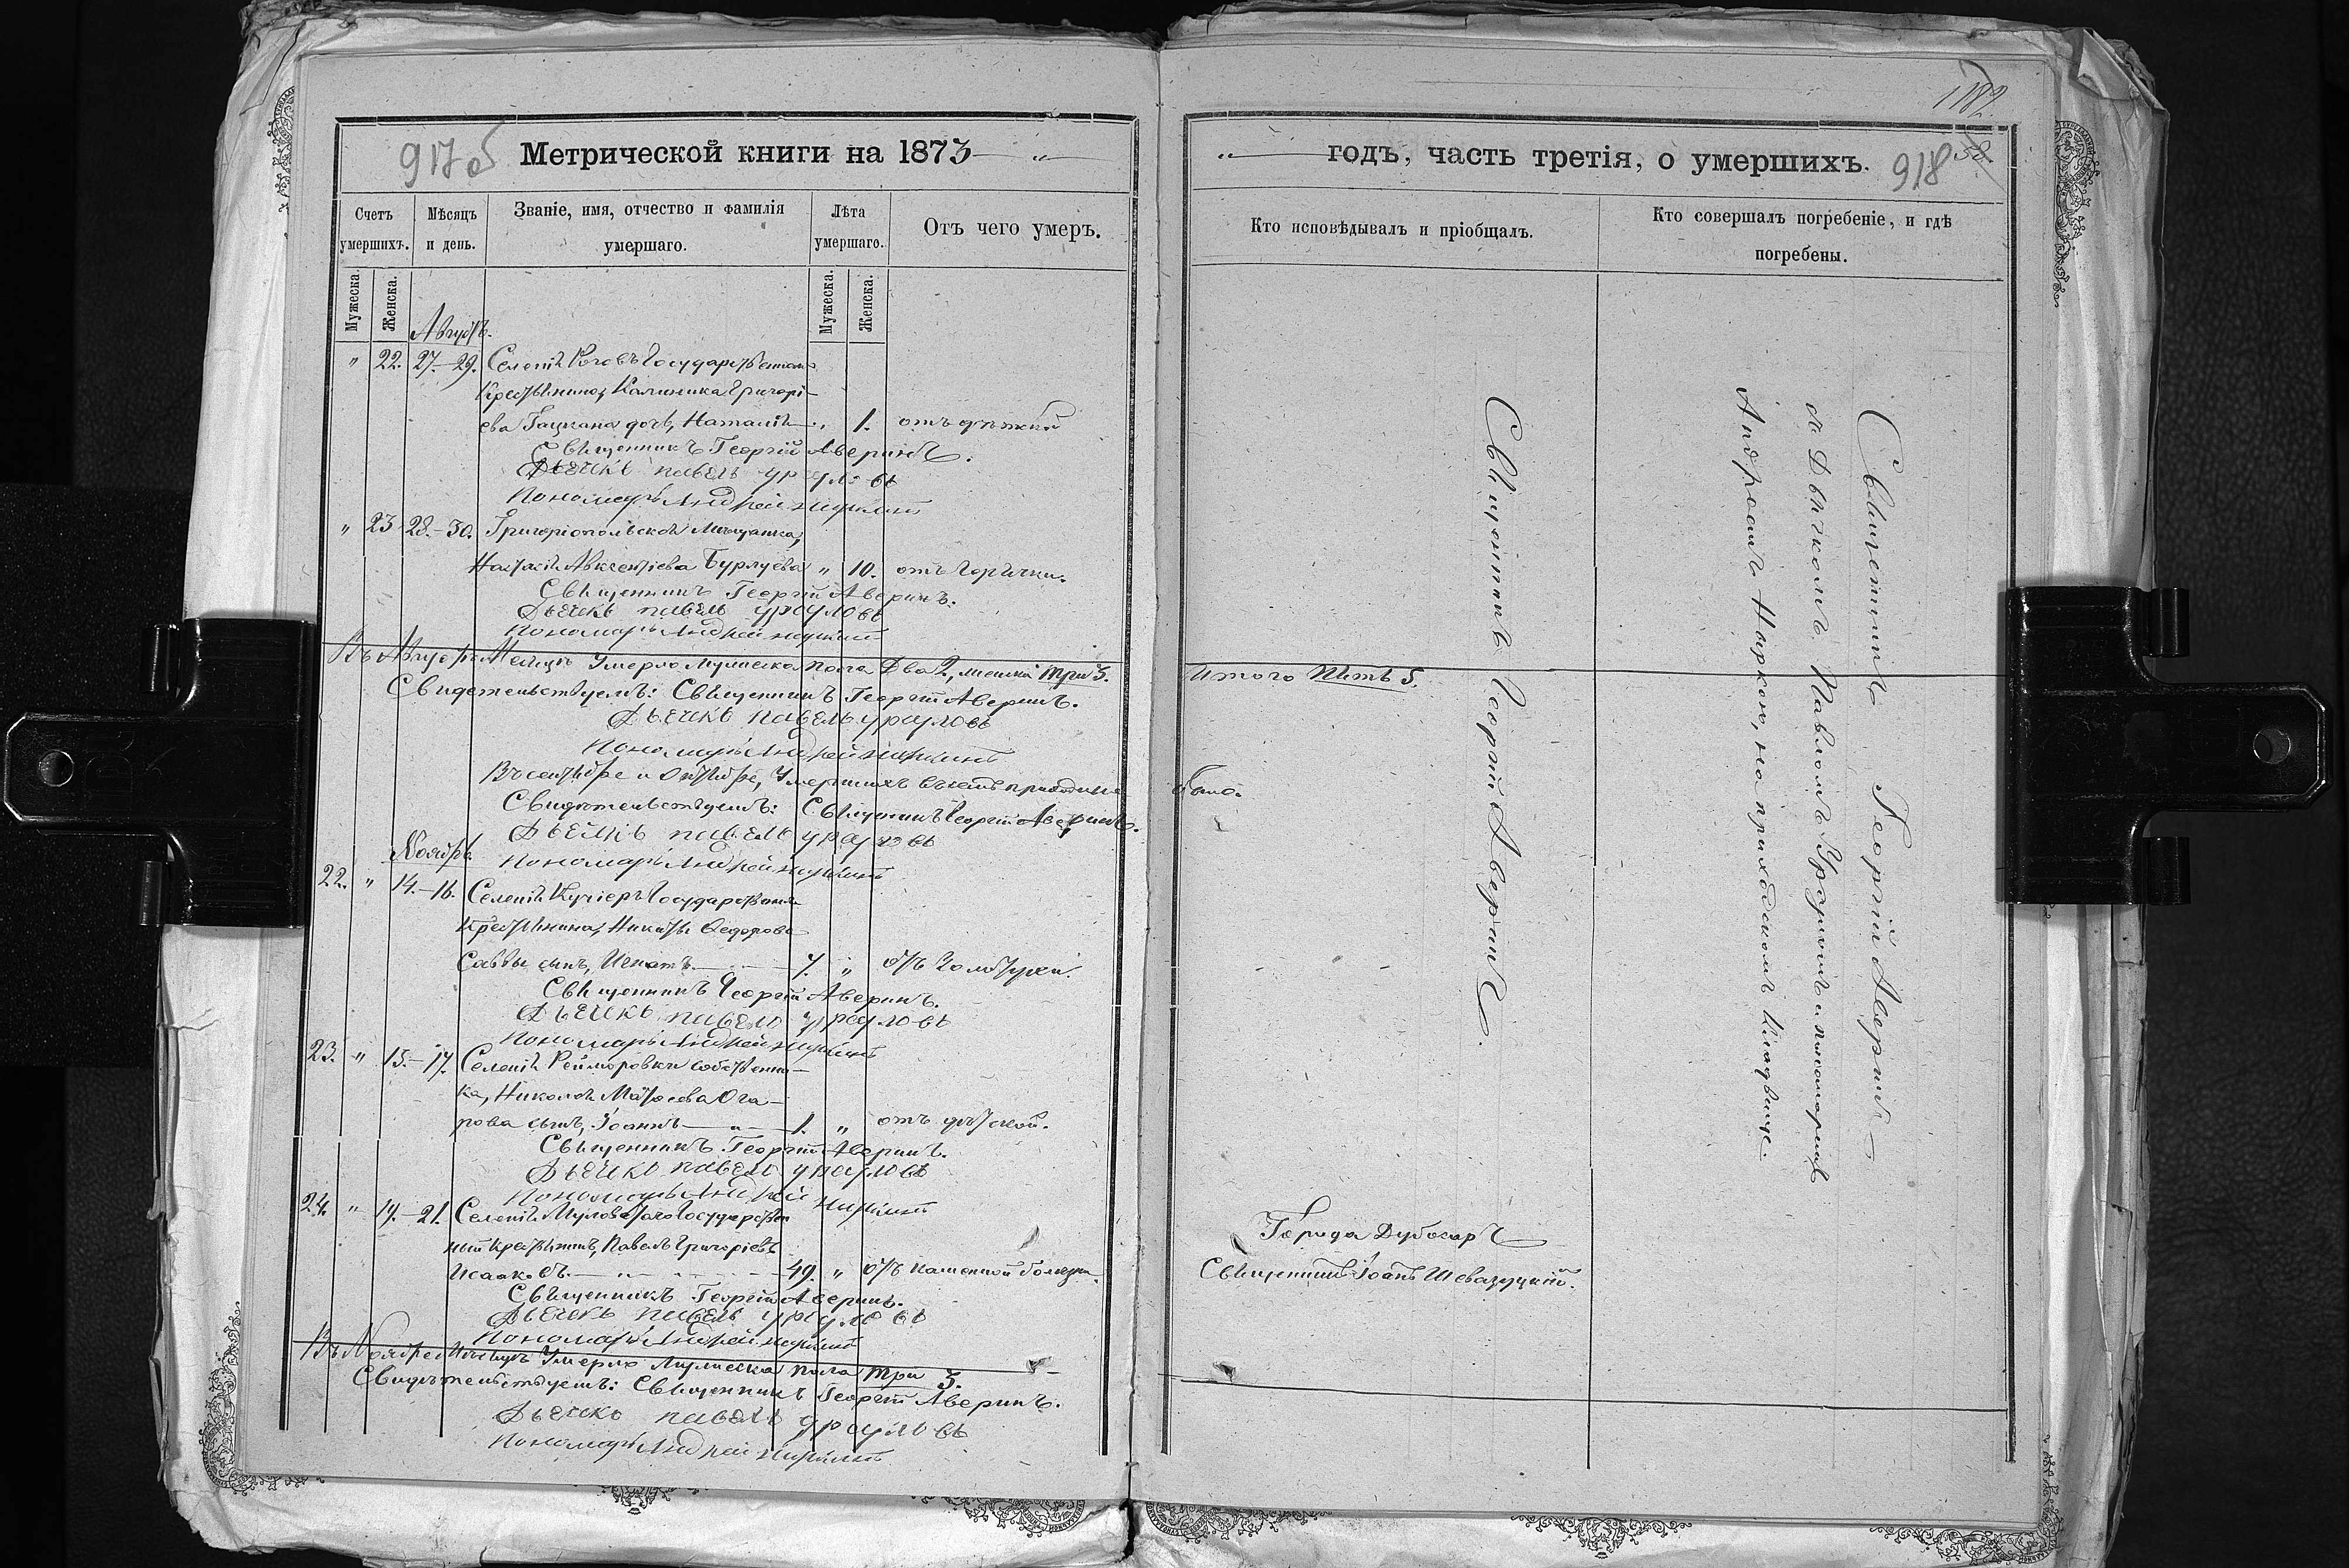 917 об
Метрической книги на 1873 — " —
Счетъ умершихъ.
Мѣсяцъ и день.
Званіе, имя, отчество и фамилія умершаго.
Лѣта умершаго.
Отъ чего умеръ.
Мужеска.
Женска.
Мужеска.
Женска.
Августъ.
" 22. 27.–29. Селенія Рогов Государственнаго
Крестьянина, Калиника Григорі-
ева дочь, Наталія — " 1. отъ дѣтской
Священникъ Георгій Аверинъ.
Дьячекъ Павелъ Урсуловъ
Пономарь Андрей
" 23 28.–30. Григоріопольская Мѣщанка,
Настасія Авксентіева Бурлуева " 10. отъ горячки.
Священникъ Георгій Аверинъ.
Дьячекъ Павелъ Урсуловъ
Пономарь Андрей
Въ Августѣ Мѣсяцѣ Умерло Мужеска пола Два 2, женска три 3.
Свидетельствуемъ: Священникъ Георгій Аверинъ.
Дьячекъ Павелъ Урсуловъ
Пономарь Андрей
Въ сентябрѣ и Октябрѣ, Умершихъ въ семъ приходѣ не
Свидѣтельствуемъ: Священникъ Георгій Аверинъ.
Дьячекъ Павелъ Урсуловъ
Пономарь Андрей
Ноябрь.
22. " 14.–16. Селенія Кучіеръ Государственнаго
Крестьянина, Никиты Ѳедорова
Саввы сынъ, Игнатъ — 7. " отъ золотухи.
Священникъ Георгій Аверинъ.
Дьячекъ Павелъ Урсуловъ
Пономарь Андрей
23. " 15.–17. Селенія Рейморовки собственни-
ка, Николая Матѳеева Ога-
рова сынъ, Іоаннъ — " — 1. " отъ дѣтской.
Священникъ Георгій Аверинъ.
Дьячекъ Павелъ Урсуловъ
Пономарь Андрей
24. " 19.–21. Селенія Государствен
ный крестьянинъ, Павелъ Григоріевъ
Исааковъ. — " — 49. " отъ каменной болезни.
Священникъ Георгій Аверинъ.
Дьячекъ Павелъ Урсуловъ
Пономарь Андрей
Въ Ноябрѣ Мѣсяцѣ Умерло Мужеска пола три 3.
Свидѣтельствуемъ: Священникъ Георгій Аверинъ.
Дьячекъ Павелъ Урсуловъ
Пономарь Андрей
1182.
58.
" — годъ, часть третія, о умершихъ.
918
Кто исповѣдывалъ и пріобщалъ.
Кто совершалъ погребеніе, и гдѣ погребены.
Священникъ Георгій Аверинъ.
Священникъ Георгій Аверинъ
съ Дьячкомъ Павломъ Урсуломъ и пономаремъ
Андреемъ на приходскомъ кладбище.
Итого Пять 5.
было.
Города Дубосаръ
Священникъ Іоанъ